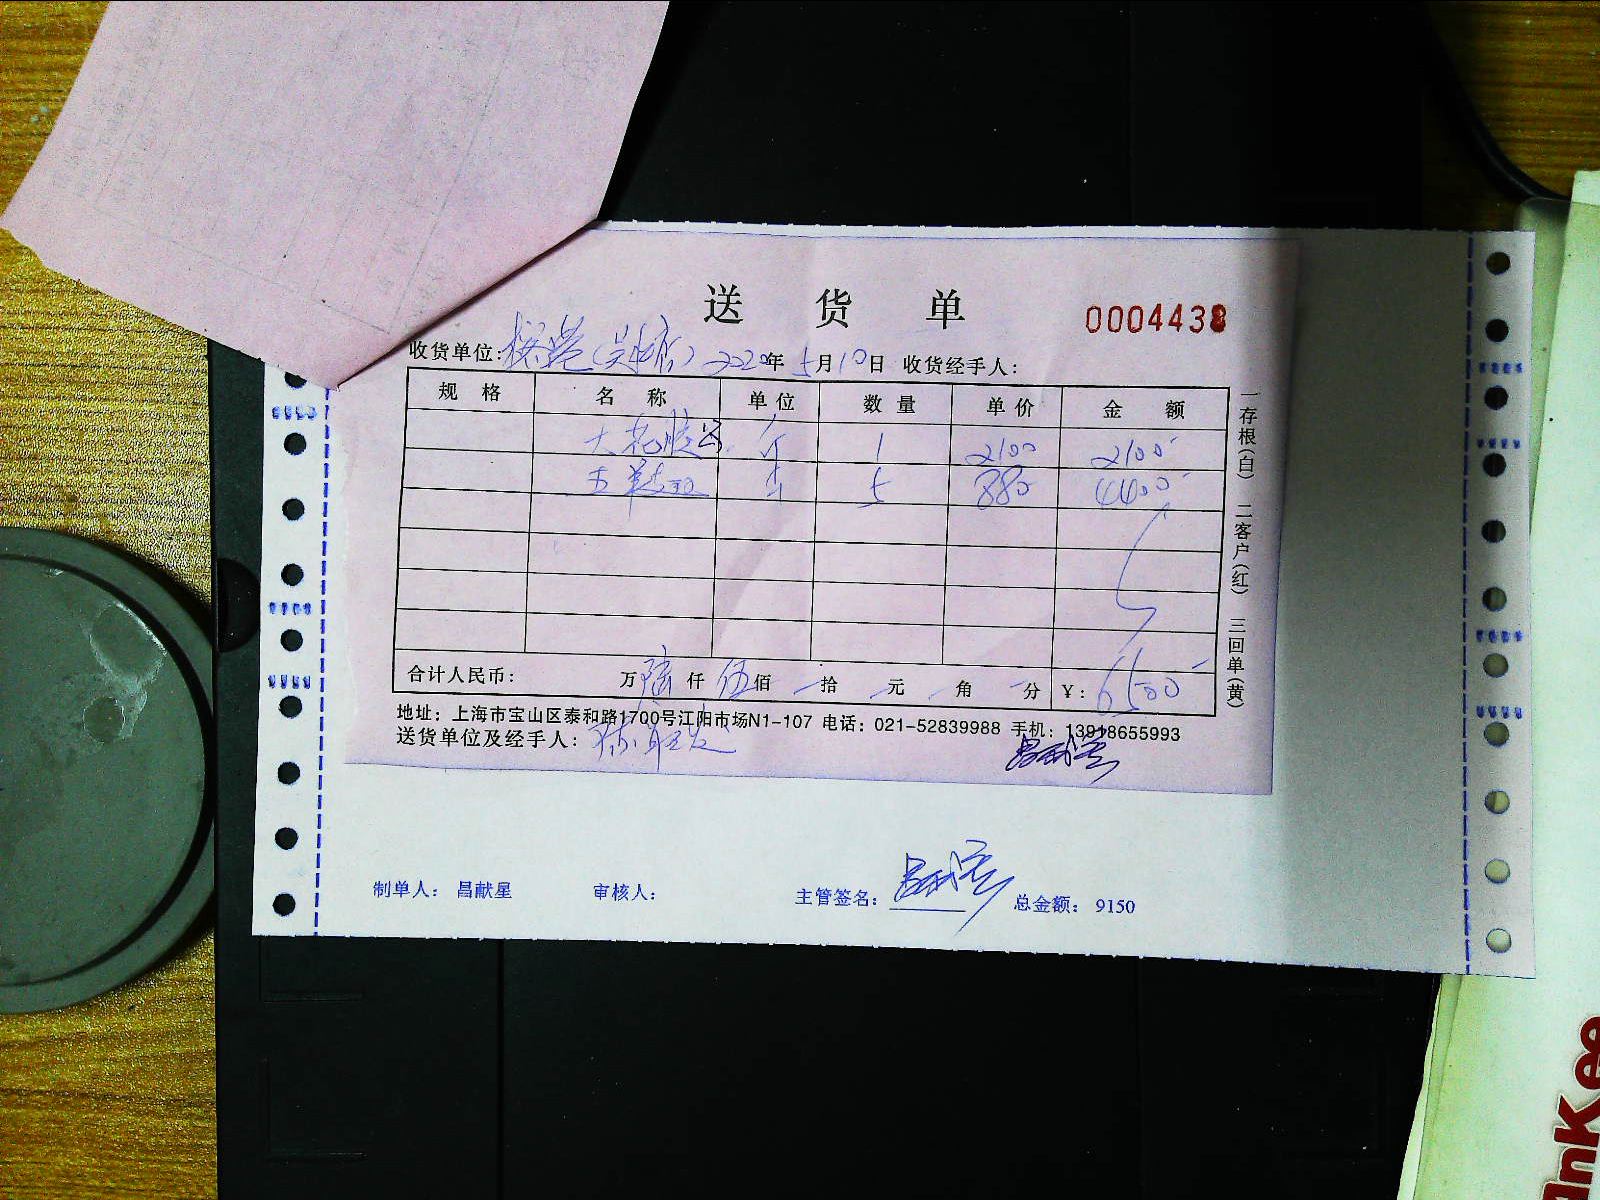 送 货 单
0004438
收货单位: 2020年5月10日 收货经手人:
规 格 名 称 单位 数量 单价 金 额
大花胶公 斤 1 2100 2100-
斤 5 880 4400-
合计人民币: 万陆仟伍佰 拾 元 角 分 ¥: 6500-
地址: 上海市宝山区泰和路1700号江阳市场N1-107 电话: 021-52839988 手机: 13918655993
送货单位及经手人:
一存根(白) 二客户(红) 三回单(黄)
制单人: 昌献星 审核人: 主管签名: 总金额: 9150